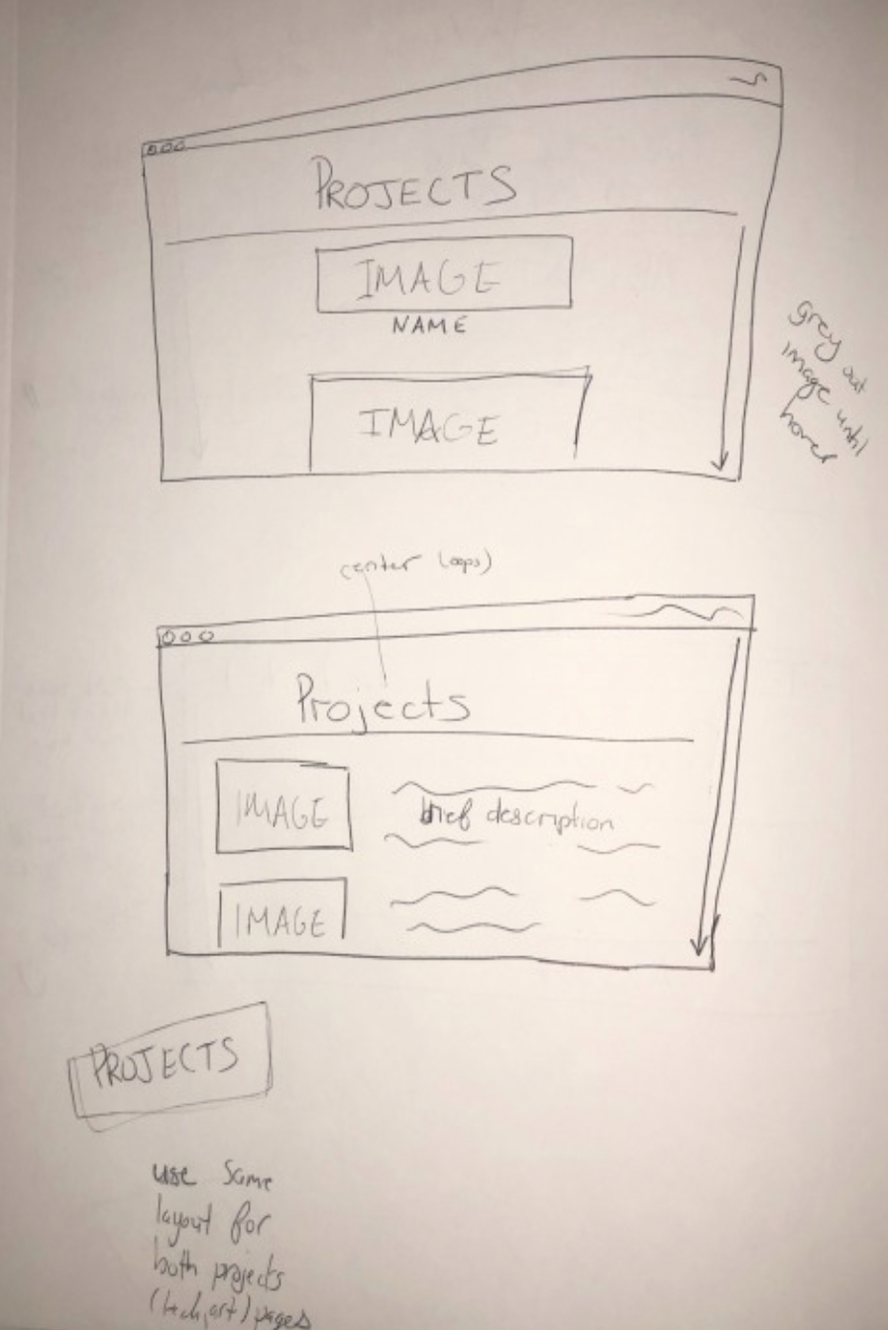 PROJECTS
IMAGE
NAME
IMAGE
grey out
image until
hover
center (oops)
Projects
IMAGE
brief description
IMAGE
PROJECTS
use same
layout for
both projects
(tech, art) pages